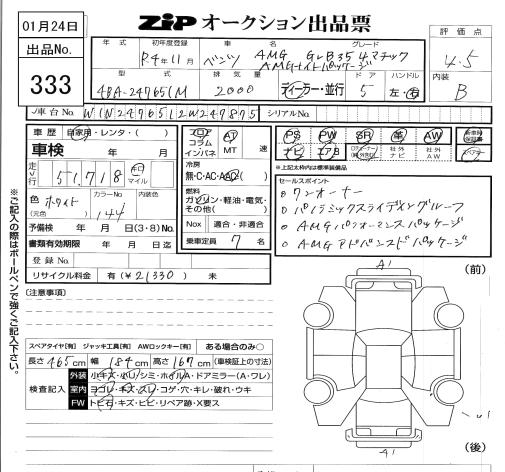 01月24日
ZIP オークション出品票
出品No.
333
年式 初年度登録 車名 グレード
R.4年11月 ベンツ AMG GLB35 4マチック
AMGナイトパッケージ
型式 排気量 ドア ハンドル
4BA-247651M 2000 ディーラー・並行 5 左・右
評価点
4.5
内装
B
車台No. W1N2476512W247875 シリアルNo.
車歴 自家用・レンタ・( )
車検 年 月
走行 51,718 キロ マイル
色 ホワイト カラーNo 内装色
(元色) 144
予備検 年 月 日(3・8)No.
書類有効期限 年 月 日迄
登録No.
リサイクル料金 有(¥21330) 未
フロア コラム インパネ AT MT 速
冷房
無・C・AC・AAC
燃料
ガソリン・軽油・電気・その他( )
Nox 適合・非適合
乗車定員 7 名
PS PW SR 革 AW 新車時保証書
ナビ エアB 社外ナビ 社外AW
※上記太枠内は標準装備品
セールスポイント
ワンオーナー
パノラミックスライディングルーフ
AMGパフォーマンスパッケージ
AMGアドバンスドパッケージ
※ご記入の際はボールペンで強くご記入下さい。
(注意事項)
A1 (前)
スペアタイヤ[有] ジャッキ工具[有] AWロックキー[有] ある場合のみ○
長さ 465cm 幅 184cm 高さ 167cm (車検証上の寸法)
検査記入
外装 小キズ・小凹・シミ・ホイルA・ドアミラー(A・ワレ)
室内 ヨゴレ・キズ・スレ・コゲ・穴・キレ・破れ・ウキ
FW トビ石・キズ・ヒビ・リペア跡・X要ス
A1 (後)